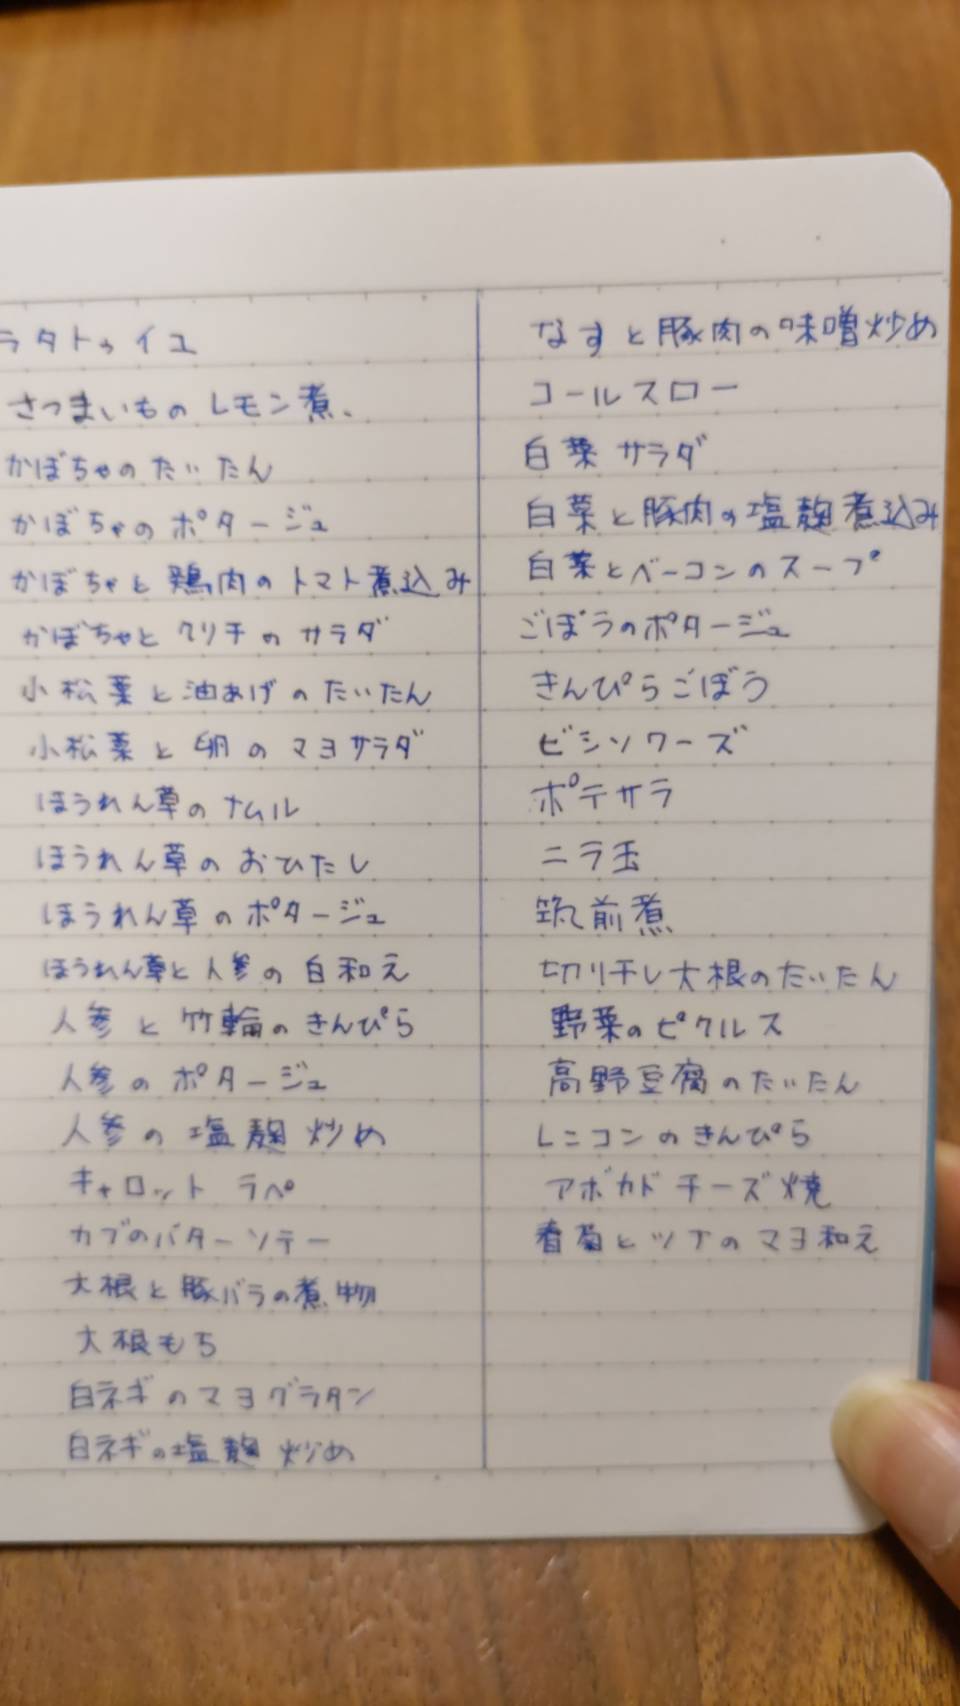 ラタトゥイユ
さつまいものレモン煮、
かぼちゃのたいたん
かぼちゃのポタージュ
かぼちゃと鶏肉のトマト煮込み
かぼちゃとクリチのサラダ
小松菜と油あげのたいたん
小松菜と卵のマヨサラダ
ほうれん草のナムル
ほうれん草のおひたし
ほうれん草のポタージュ
ほうれん草と人参の白和え
人参と竹輪のきんぴら
人参のポタージュ
人参の塩麹炒め
キャロットラペ
カブのバターソテー
大根と豚バラの煮物
大根もち
白ネギのマヨグラタン
白ネギの塩麹炒め
なすと豚肉の味噌炒め
コールスロー
白菜サラダ
白菜と豚肉の塩麹煮込み
白菜とベーコンのスープ
ごぼうのポタージュ
きんぴらごぼう
ビシソワーズ
ポテサラ
ニラ玉
筑前煮
切り干し大根のたいたん
野菜のピクルス
高野豆腐のたいたん
レンコンのきんぴら
アボカドチーズ焼
春菊とツナのマヨ和え